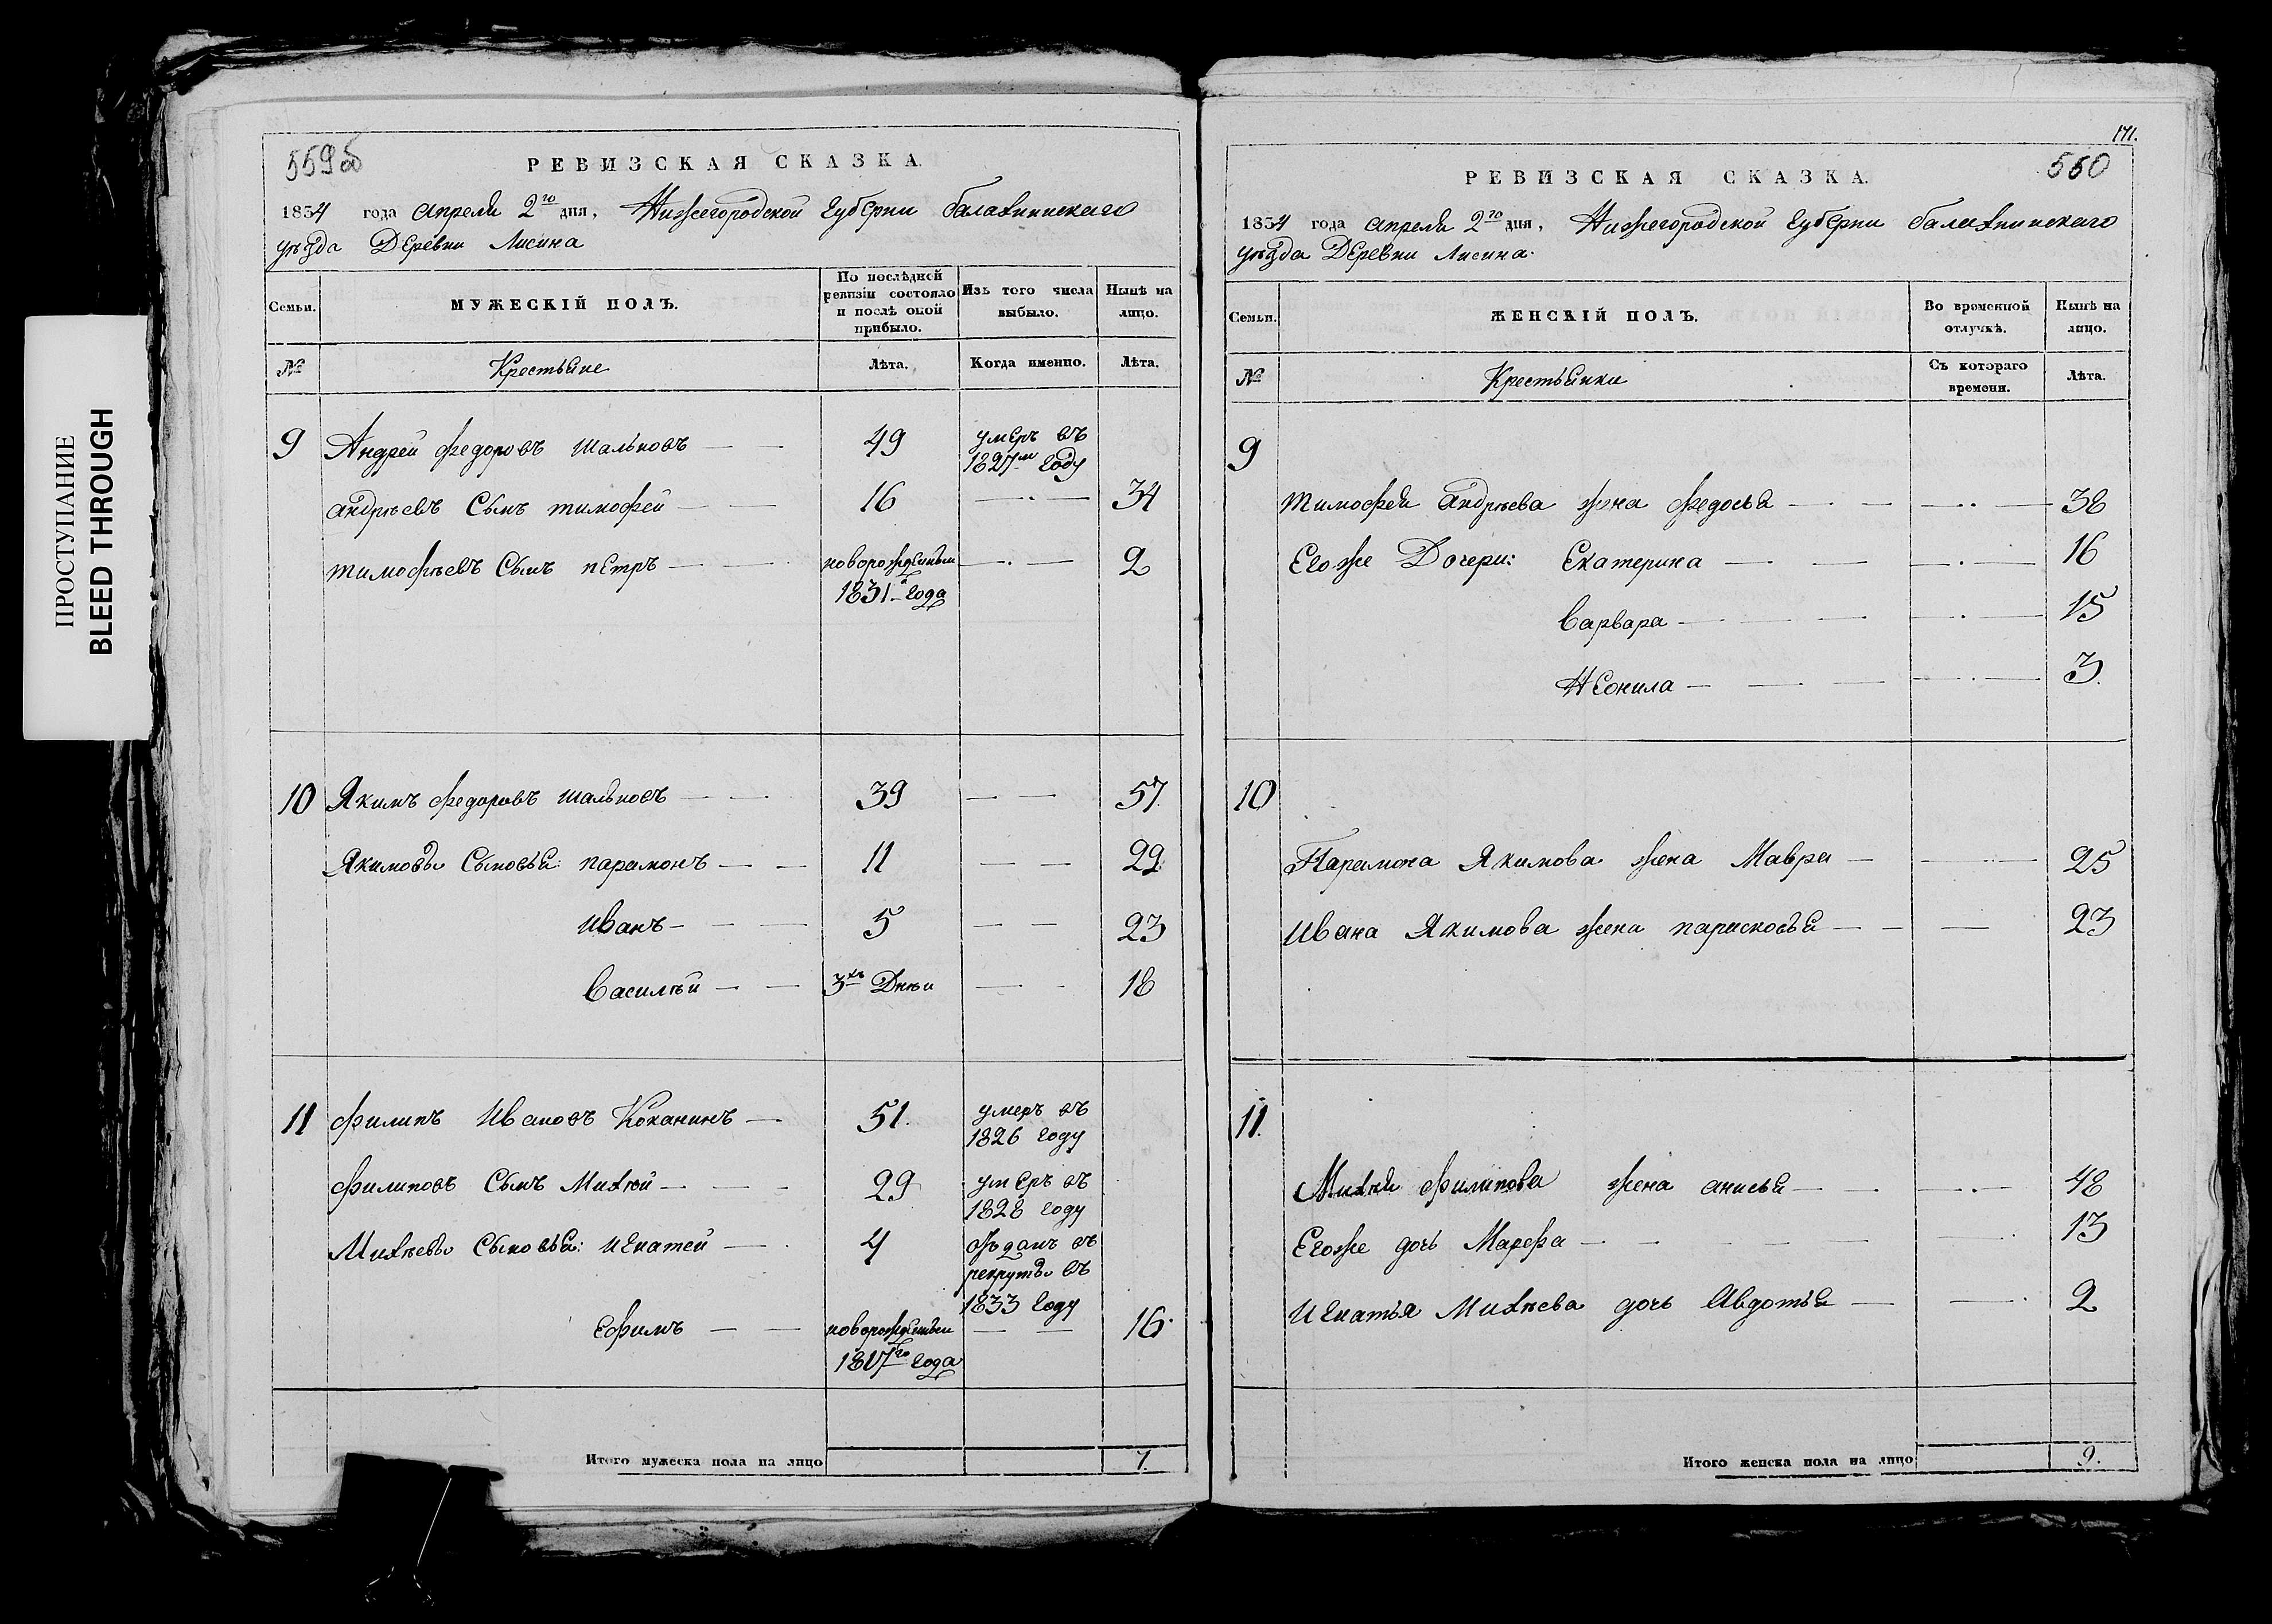 ПРОСТУПАНИЕ
BLEED THROUGH
559об
РЕВИЗСКАЯ СКАЗКА.
1834 года апреля 2го дня, Нижегородской Губерни балахнинскаго
уѣзда Деревни Лисина
Семьи. МУЖЕСКІЙ ПОЛЪ. По послѣдней ревизіи состояло и послѣ оной прибыло. Изъ того числа выбыло. Нынѣ на лицо.
№ Крестьяне Лѣта. Когда именно. Лѣта.
9 Андреи федоровъ шальновъ — — 49 умеръ въ
1827м году
андрѣевъ Сынъ тимофеи — — 16 — — 34
тимофѣевъ Сынъ петръ — — новорожденныи — — 2
1831го года
10 Якимъ федоровъ шальновъ — — 39 — — 57
Якимовы Сыновья: парамонъ — — 11 — — 29
иванъ — — 5 — — 23
василѣи — — 3хъ Днѣи — — 18
11 филипъ Ивановъ Коканинъ — 51. умеръ въ
1826 году
филиповъ Сынъ Михѣй — — 29 умеръ въ
1828 году
Михѣевы Сыновья: игнатей — 4 отданъ въ
рекруты въ
1833 году
ефимъ — — новорожденныи — — 16
1817го года
Итого мужеска пола на лицо 7.
171.
560
РЕВИЗСКАЯ СКАЗКА.
1834 года апреля 2го дня, Нижегородской Губерни балахнинскаго
уѣзда Деревни Лисина.
Семьи. ЖЕНСКІЙ ПОЛЪ. Во временной отлучкѣ. Нынѣ на лицо.
№ Крестьянки Съ котораго времени. Лѣта.
9
тимофея андрѣева жена федосья — — 38
Егоже Дочери: Екатерина — — 16
варвара — — 15
Неонила — — 3.
10
Парамона Якимова жена Мавра — — 25
Ивана Якимова жена парасковья — — 23
11.
Михѣя филипова жена анисья — — 48
Егоже дочь Марфа — — 13
игнатья Михѣева дочь Авдотья — — 2
Итого женска пола на лицо 9.